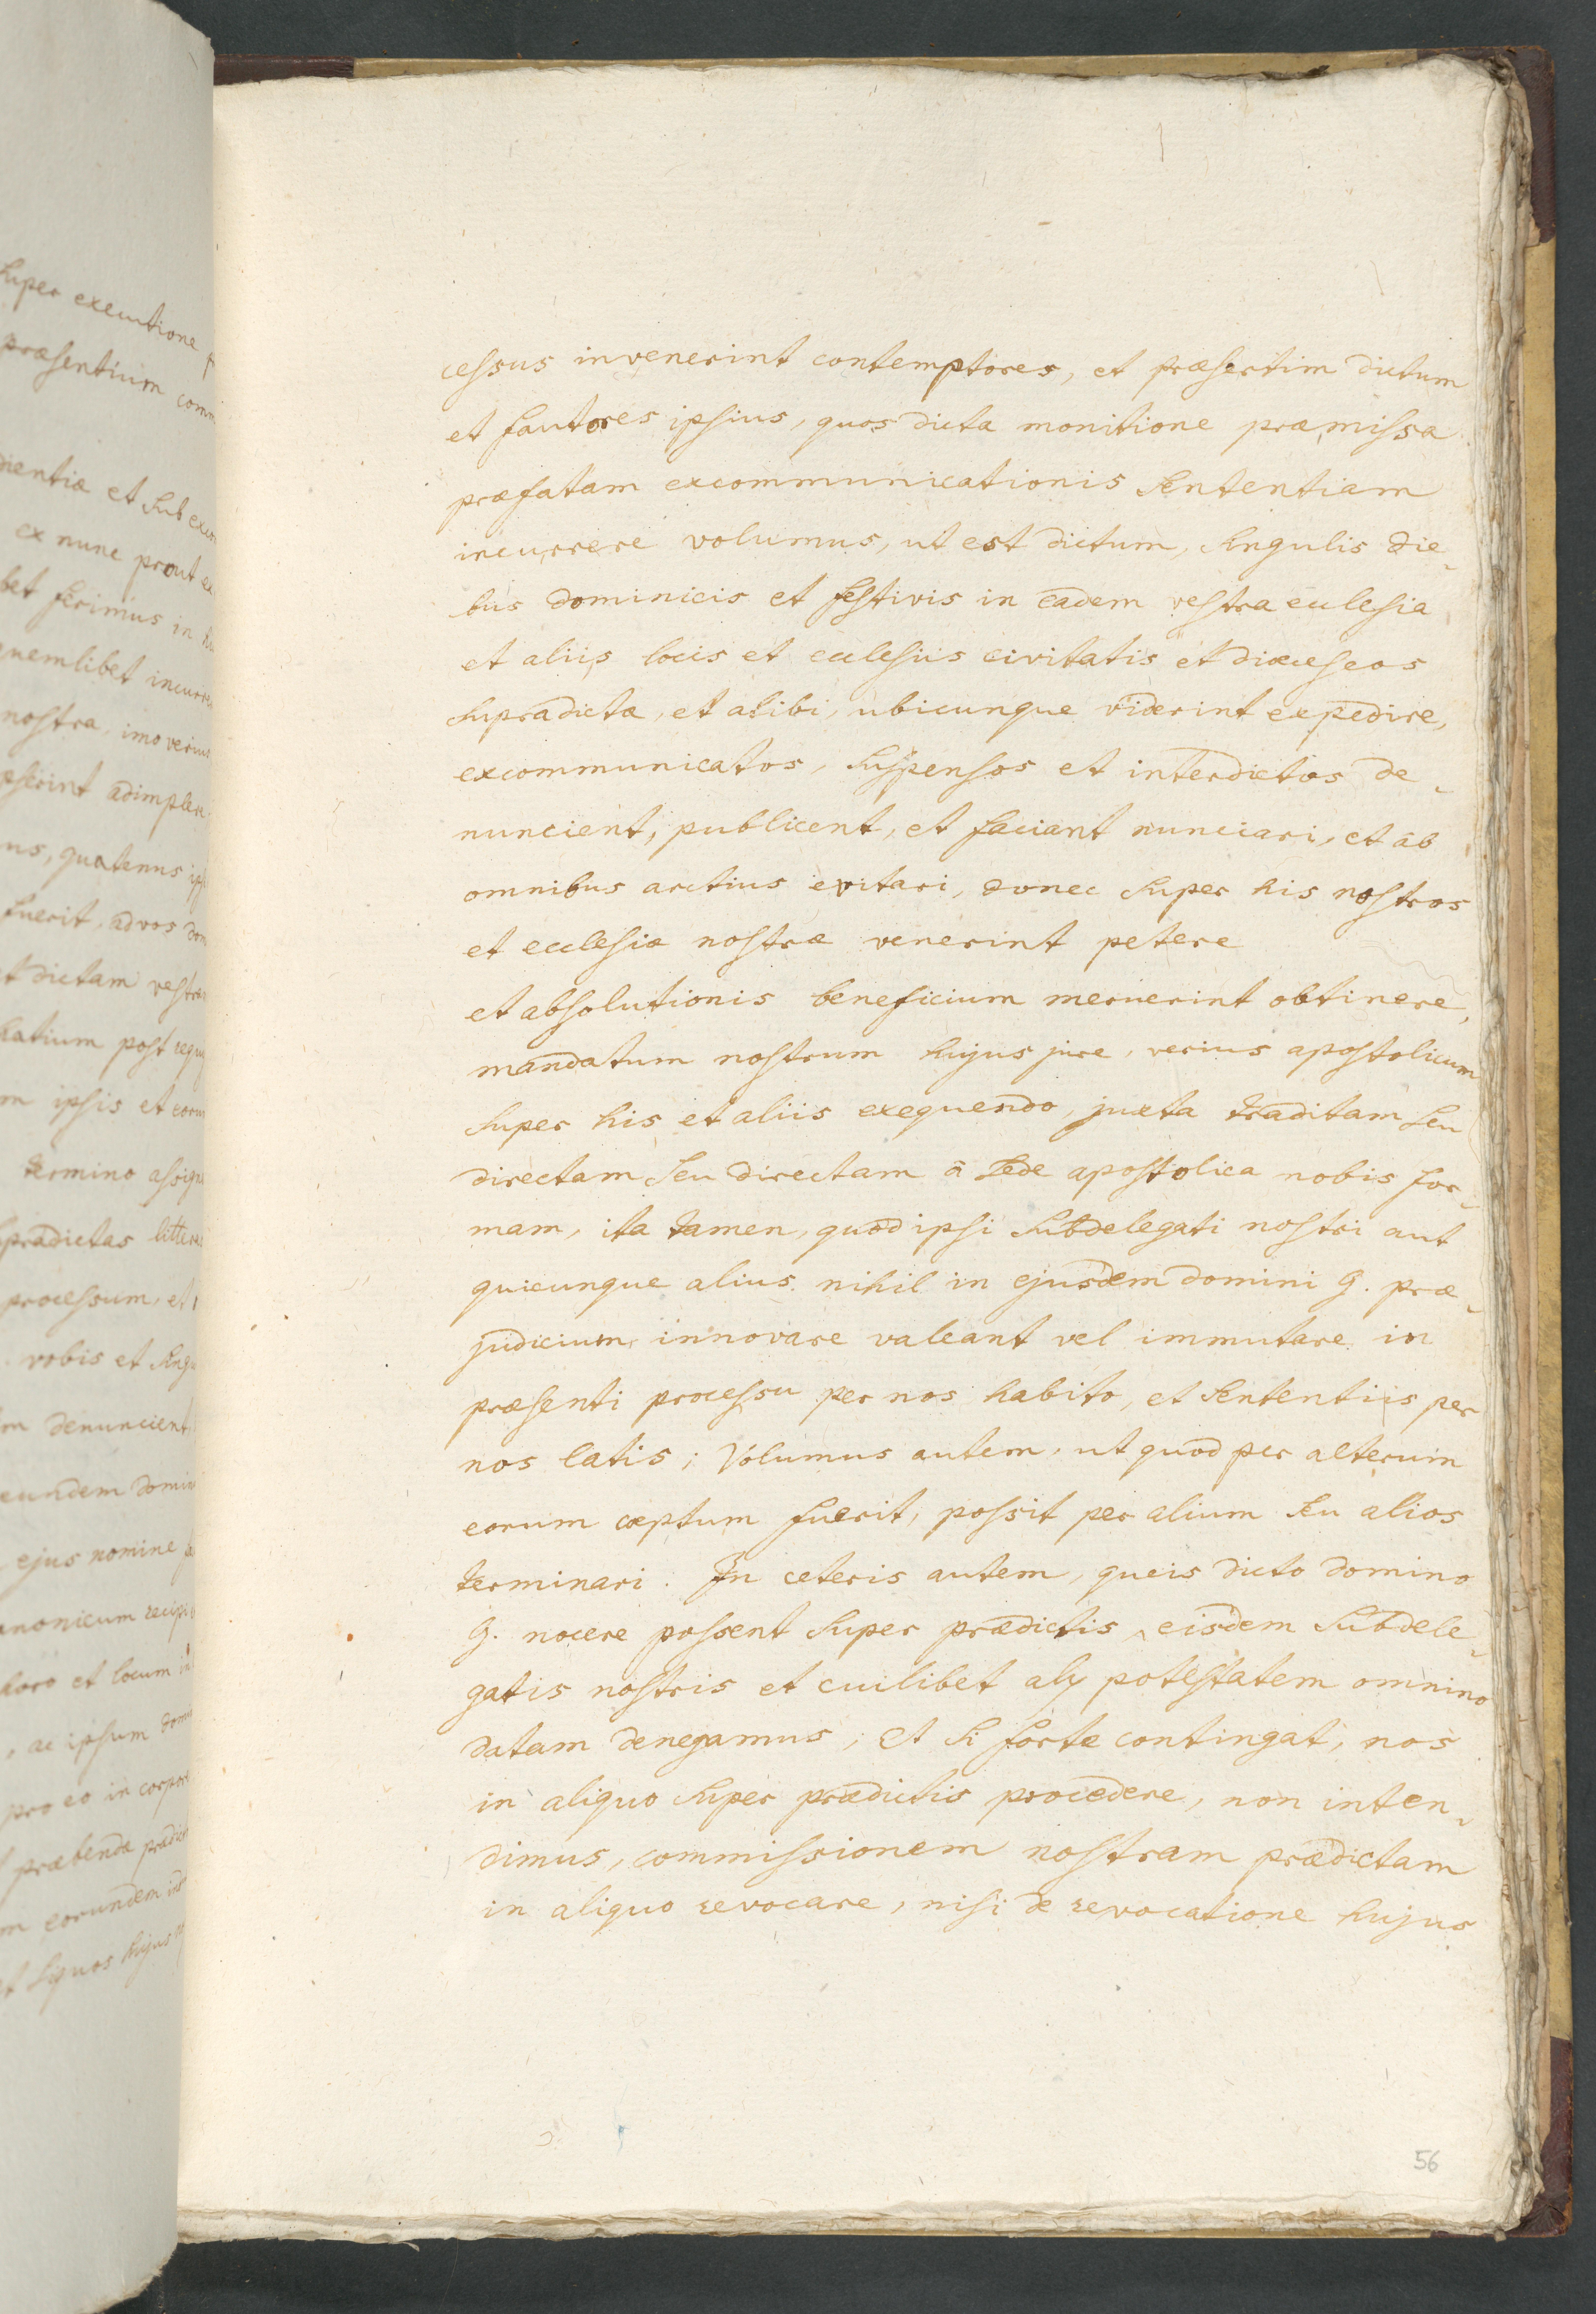 super executione
præsentium
dientiæ et sub
ex nunc prout
bet ferimus in
quemlibet
nostra, imo verius
adimplen
us, quatenus
fuerit, ad vos
dictam
post
m ipsis et
termino
prædictas
processum, et
vobis et
m denuncient
eundem
ejus nomine
et locum
, ac ipsum
pro eo in
præbendæ
m eorundem
hujus
cessus invenerint contemptores, et præsertim dictum
et fautores ipsius, quos dicta monitione præmissa
præfatam excommunicationis sententiam
incurrere volumus, ut est dictum, singulis die-
bus dominicis et festivis in eadem vestra ecclesia
et aliis locis et ecclesiis civitatis et diœceseos
supradictæ, et alibi, ubicunque viderint expedire,
excommunicatos, suspensos et interdictos de-
nuncient, publicent, et faciant nunciari, et ab
omnibus arctius evitari, donec super his nostros
et ecclesiæ nostræ venerint petere
et absolutionis beneficium meruerint obtinere,
mandatum nostrum hujus jure, verius apostolicum
super his et aliis exequendo, juxta traditam seu
directam seu directam à sede apostolica nobis for-
mam, ita tamen, quod ipsi subdelegati nostri aut
quicunque alius nihil in ejusdem domini G. præ-
judicium innovare valeant vel immutare in
præsenti processu per nos habito, et sententiis per
nos latis; Volumus autem, ut quod per alterum
eorum cœptum fuerit, possit per alium seu alios
terminari. In ceteris autem, queis dicto domino
G. nocere possent super prædictis, eisdem subdele-
gatis nostris et cuilibet alij potestatem omnino
datam denegamus; et si forte contingat, nos
in aliquo super prædictis procedere, non inten-
dimus, commissionem nostram prædictam
in aliquo revocare, nisi de revocatione hujus
56